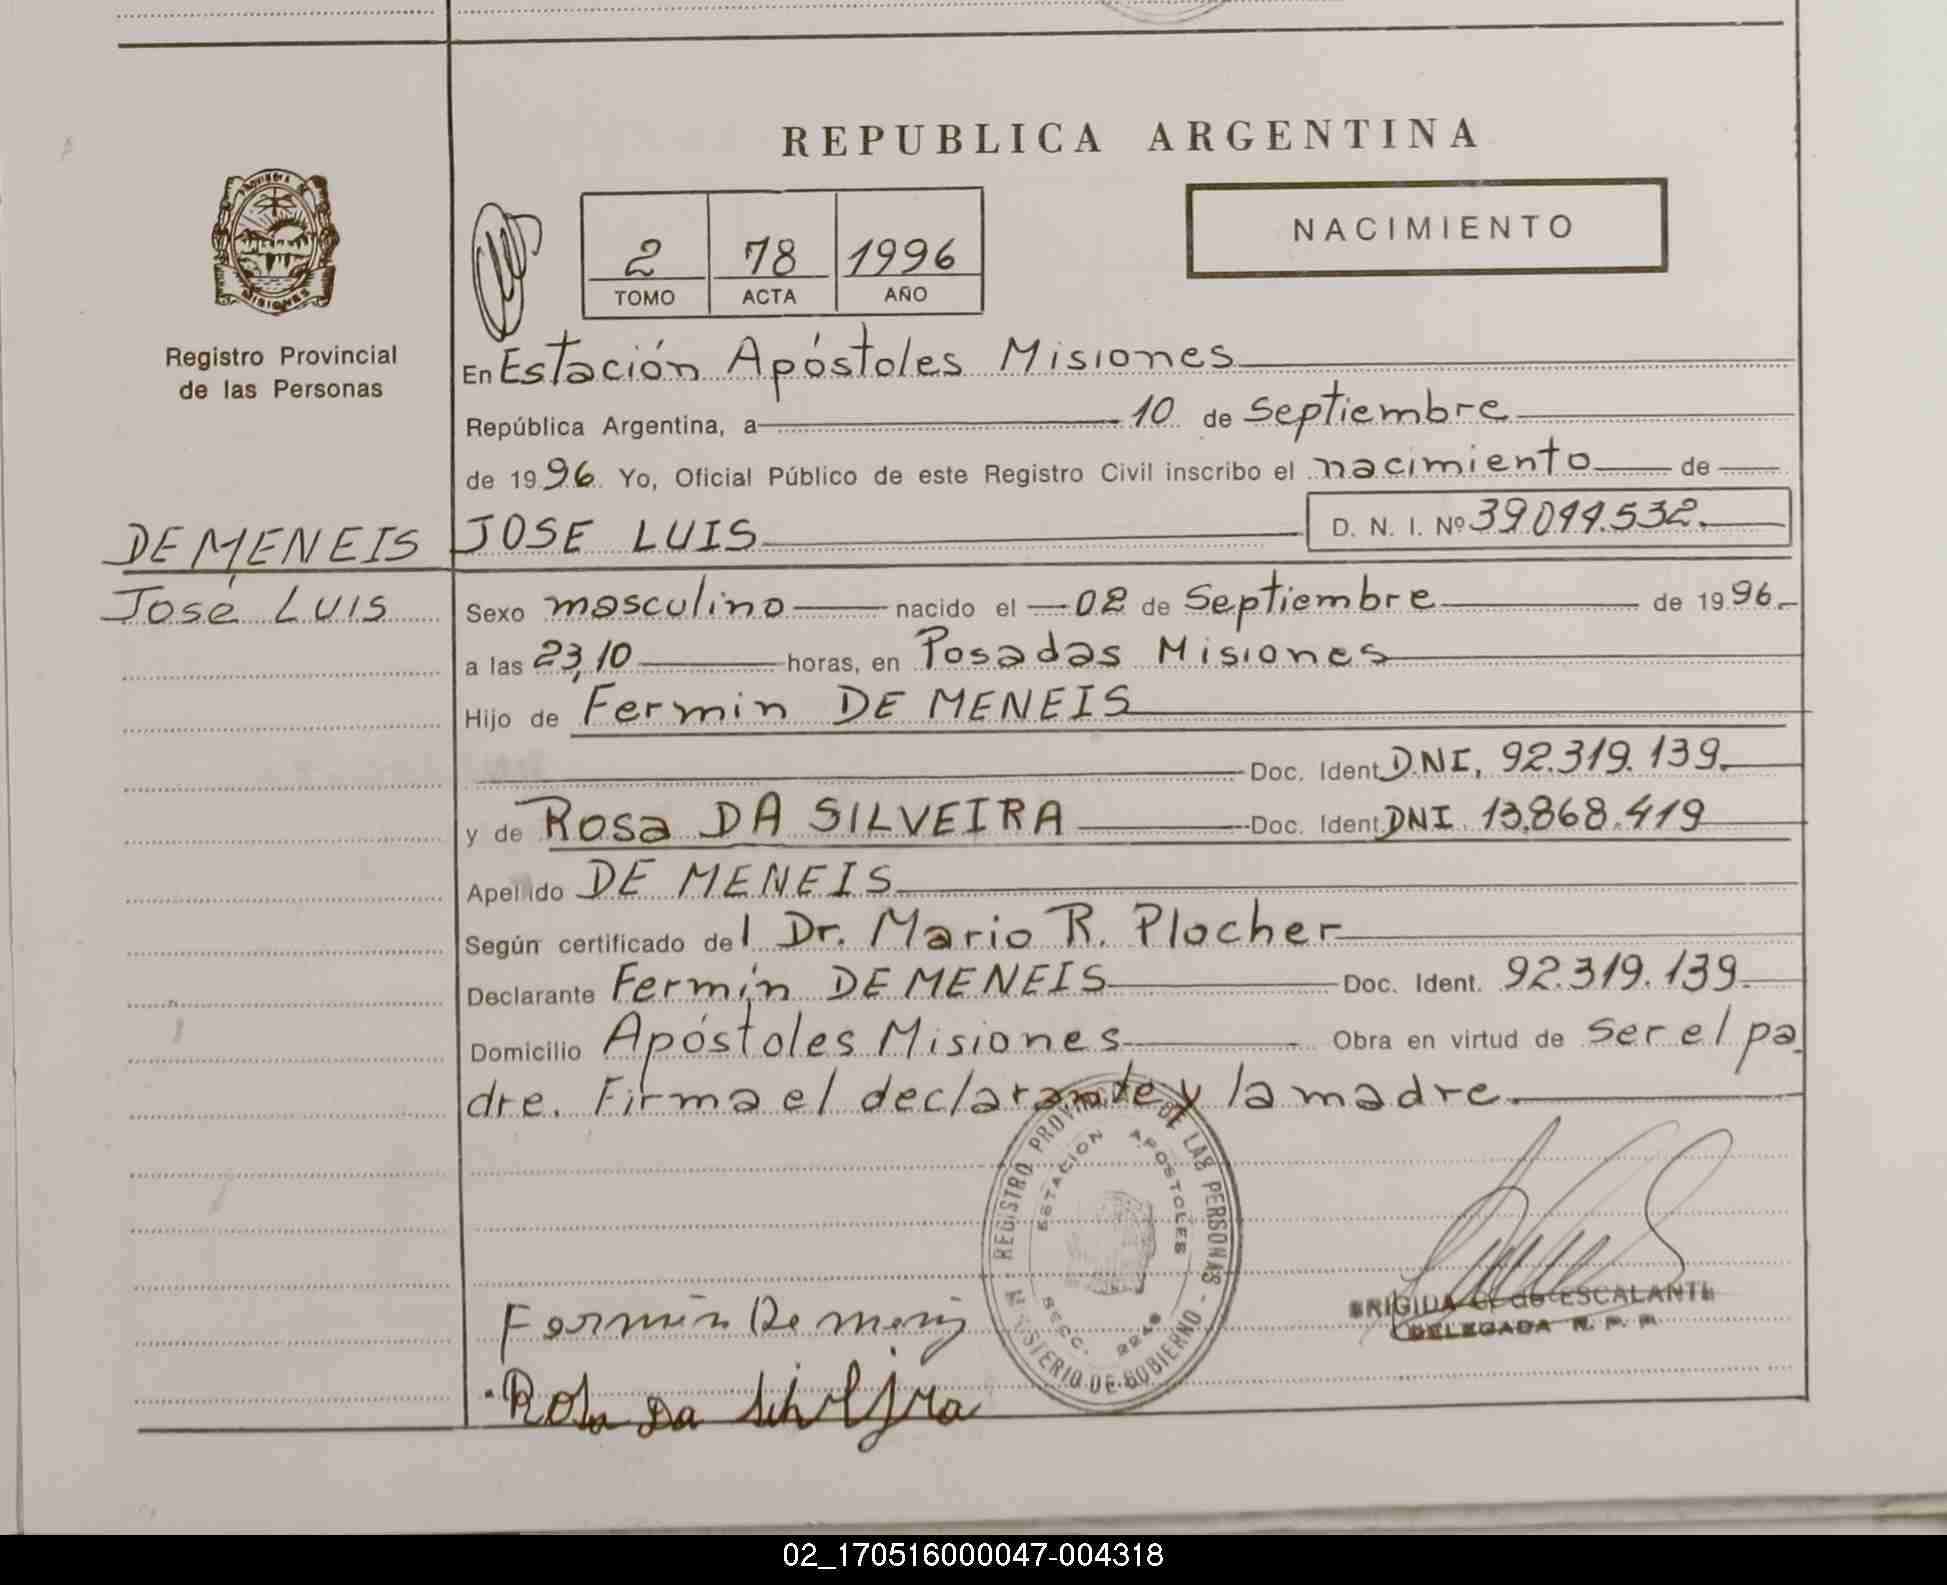 REPUBLICA ARGENTINA
PROVINCIA DE
MISIONES
Registro Provincial
de las Personas
2 78 1996
TOMO ACTA AÑO
NACIMIENTO
En Estación Apóstoles Misiones
República Argentina, a 10 de Septiembre
de 1996 Yo, Oficial Público de este Registro Civil inscribo el nacimiento de
DE MENEIS
José Luis
JOSE LUIS D. N. I. Nº 39.044.532.
Sexo masculino nacido el 02 de Septiembre de 1996.
a las 23,10 horas, en Posadas Misiones
Hijo de Fermin DE MENEIS
Doc. Ident DNI. 92.319.139.
y de Rosa DA SILVEIRA Doc. Ident. DNI 13.868.419
Apellido DE MENEIS
Según certificado del Dr. Mario R. Plocher
Declarante Fermín DE MENEIS Doc. Ident. 92.319.139.
Domicilio Apóstoles Misiones Obra en virtud de Ser el pa
dre. Firma el declarante y la madre.
REGISTRO PROVINCIAL DE LAS PERSONAS - MINISTERIO DE GOBIERNO -
ESTACION APOSTOLES
SECC. 2248
BRIGIDA de ESCALANTE
DELEGADA R. P. P.
Fermín De meneis
Rosa Da Silveira
02_170516000047-004318